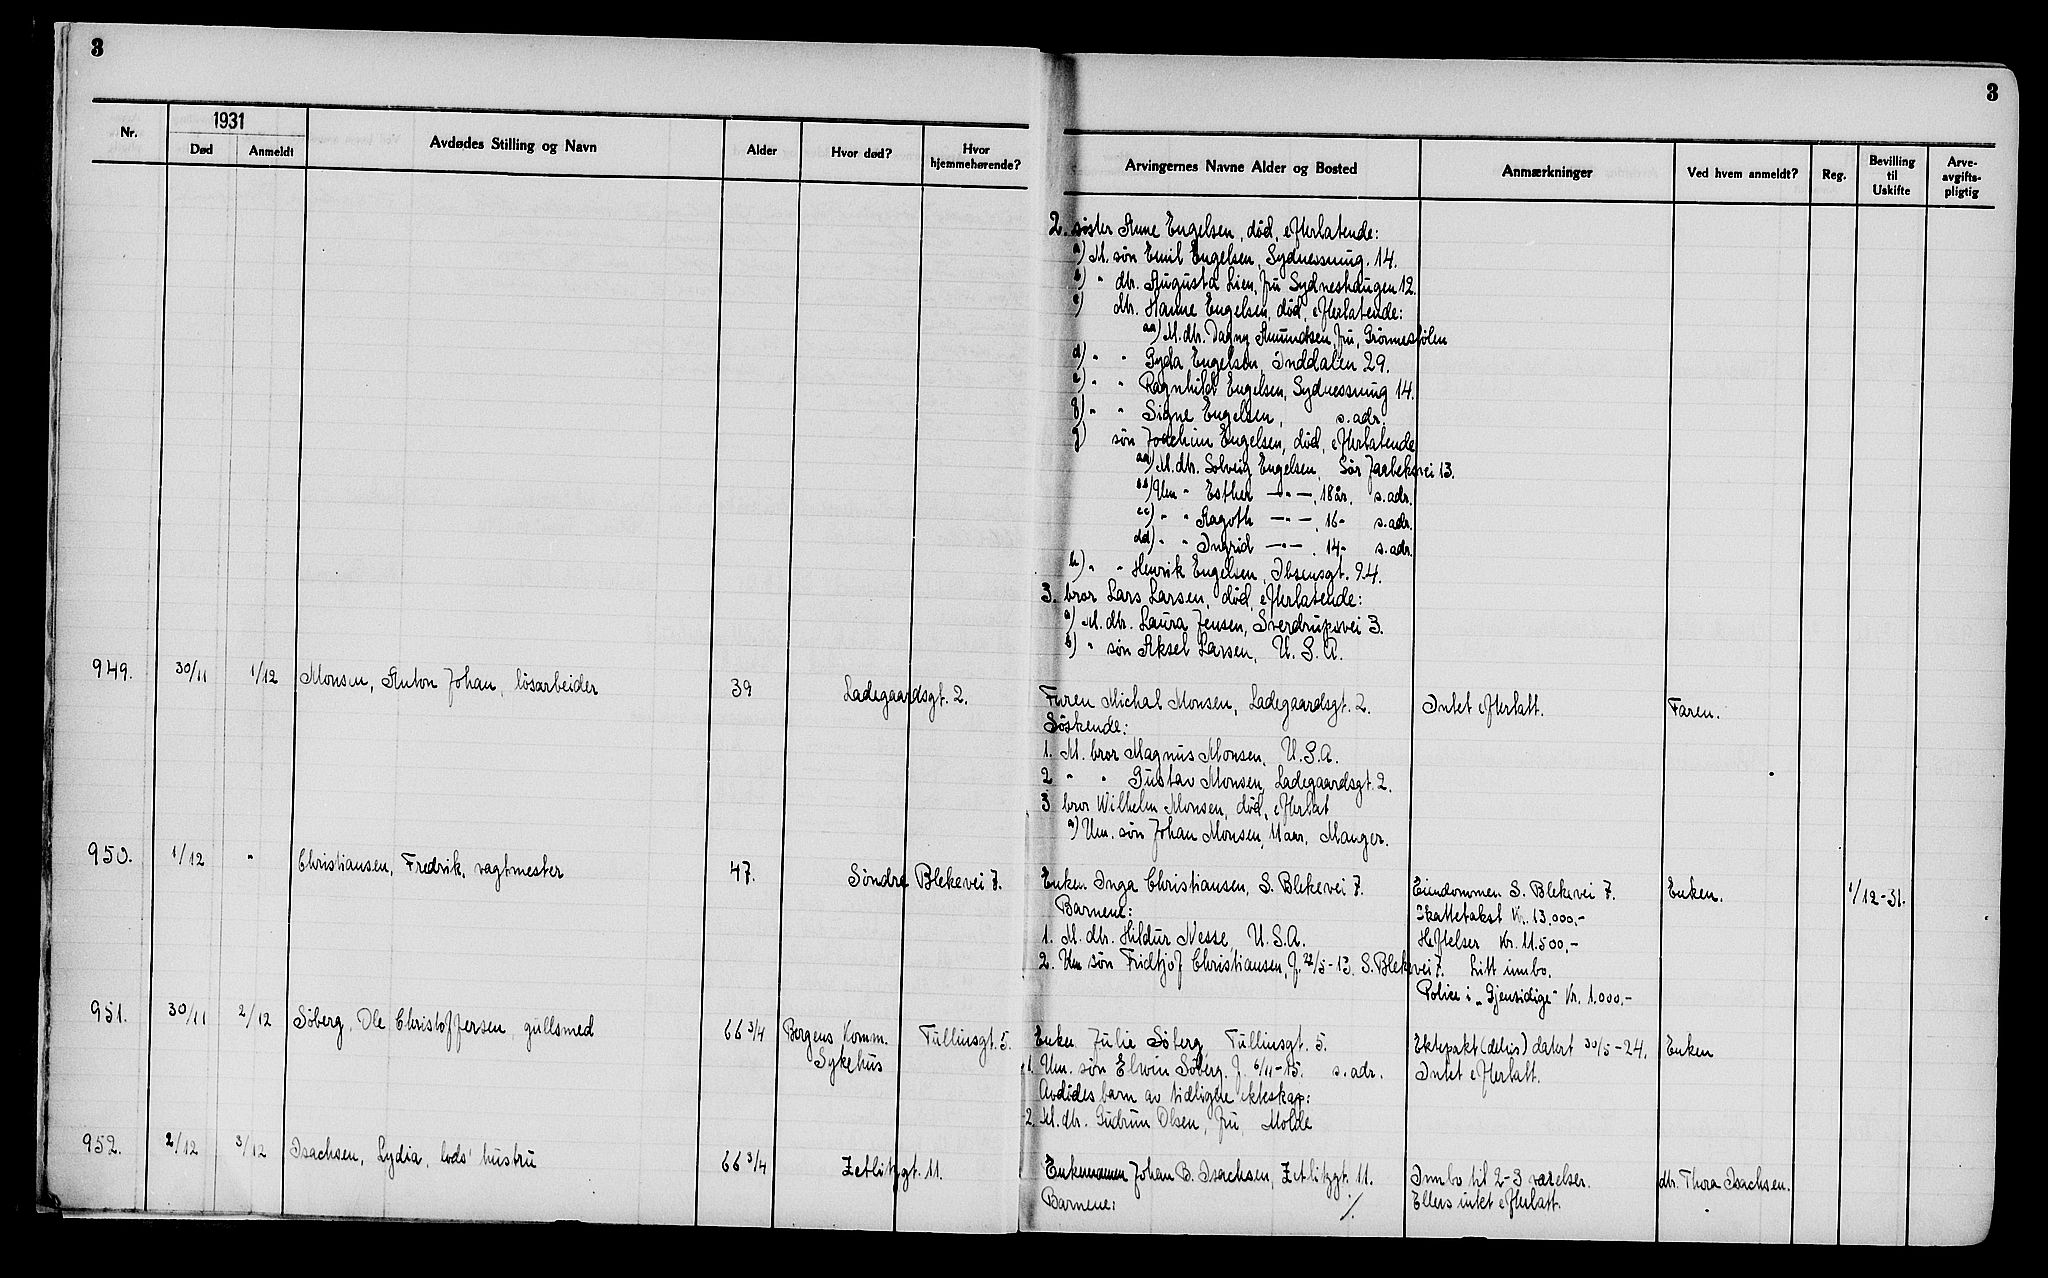 3
3
Nr.
1931
Død
Anmeldt
Avdødes Stilling og Navn
Alder
Hvor død?
Hvor
hjemmehørende?
Arvingernes Navne Alder og Bosted
Anmærkninger
Ved hvem anmeldt?
Reg.
Bevilling
til
Uskifte
Arve-
avgifts-
pligtig
2. søster Anne Engelsen, død, efterlatende:
a) M. søn Emil Engelsen, Sydnessmug. 14.
b) " dtr. Augusta Lien, fru Sydneshaugen 12.
c) dtr. Hanne Engelsen, død, efterlatende:
aa) M. dtr. Dagny Amundsen, fru,
d) " " Gyda Engelsen, Inddalen 29.
e) " " Ragnhild Engelsen, Sydnessmug 14.
f) " " Signe Engelsen, s. adr.
g) søn Joachim Engelsen, død, efterlatende
aa) M. dtr. Solveig Engelsen, Sør 13.
bb) Um " Esther —"—, 18 år, s. adr.
cc) " " Ragoth —"—, 16 " s. adr.
dd) " " Ingrid —"—, 14 " s. adr.
h) " " Henrik Engelsen, Ibsensgt. 94.
3. bror Lars Larsen, død, efterlatende:
a) M. dtr. Laura Jensen, Sverdrupsvei 3.
b) " søn Aksel Larsen, U.S.A.
949. 30/11 1/12 Monsen, Anton Johan, løsarbeider 39 Ladegaardsgt. 2. Faren Michal Monsen, Ladegaardsgt. 2. Intet efterlatt. Faren.
Søskende:
1. M. bror Magnus Monsen, U.S.A.
2 " " Gustav Monsen, Ladegaardsgt. 2.
3 bror Wilhelm Monsen, død, efterlat
a) Um. søn Johan Monsen, 11 aar, Manger.
950. 1/12 " Christiansen, Fredrik, vagtmester 47. Søndre Blekevei 7. Enken Inga Christiansen, S. Blekevei 7. Eiendommen S. Blekevei 7. Enken. 1/12-31.
Barnene: Skattetakst Kr. 13.000,-
1. M. dtr. Hildur Nesse, U.S.A. Heftelser Kr. 11.500,-
2. Um søn Fridtjof Christiansen, f. 22/5-13. S. Blekevei 7. Litt innbo.
Police i "Gjensidige" Kr. 1.000.-
951. 30/11 2/12 Søberg, Ole Christoffersen, gullsmed 66 3/4 Bergens Komm. Tullinsgt. 5. Enken Julie Søberg, Tullinsgt. 5. Ektepakt (delvis) datert 30/5-24. Enken
Sykehus 1. Um. søn Elwin Søberg. f. 6/11-15. s. adr. Intet efterlatt.
Avdødes barn av tidligere ekteskap:
2. M. dtr. Gudrun Olsen, fru, Molde
952. 2/12 3/12 Isachsen, Lydia, lods' hustru 66 3/4 Zetlitzgt. 11. Enkemannen Johan B. Isachsen, Zetlitzgt. 11. Innbo til 2-3 værelser. dtr. Thora Isachsen.
Barnene: ./. Ellers intet efterlatt.